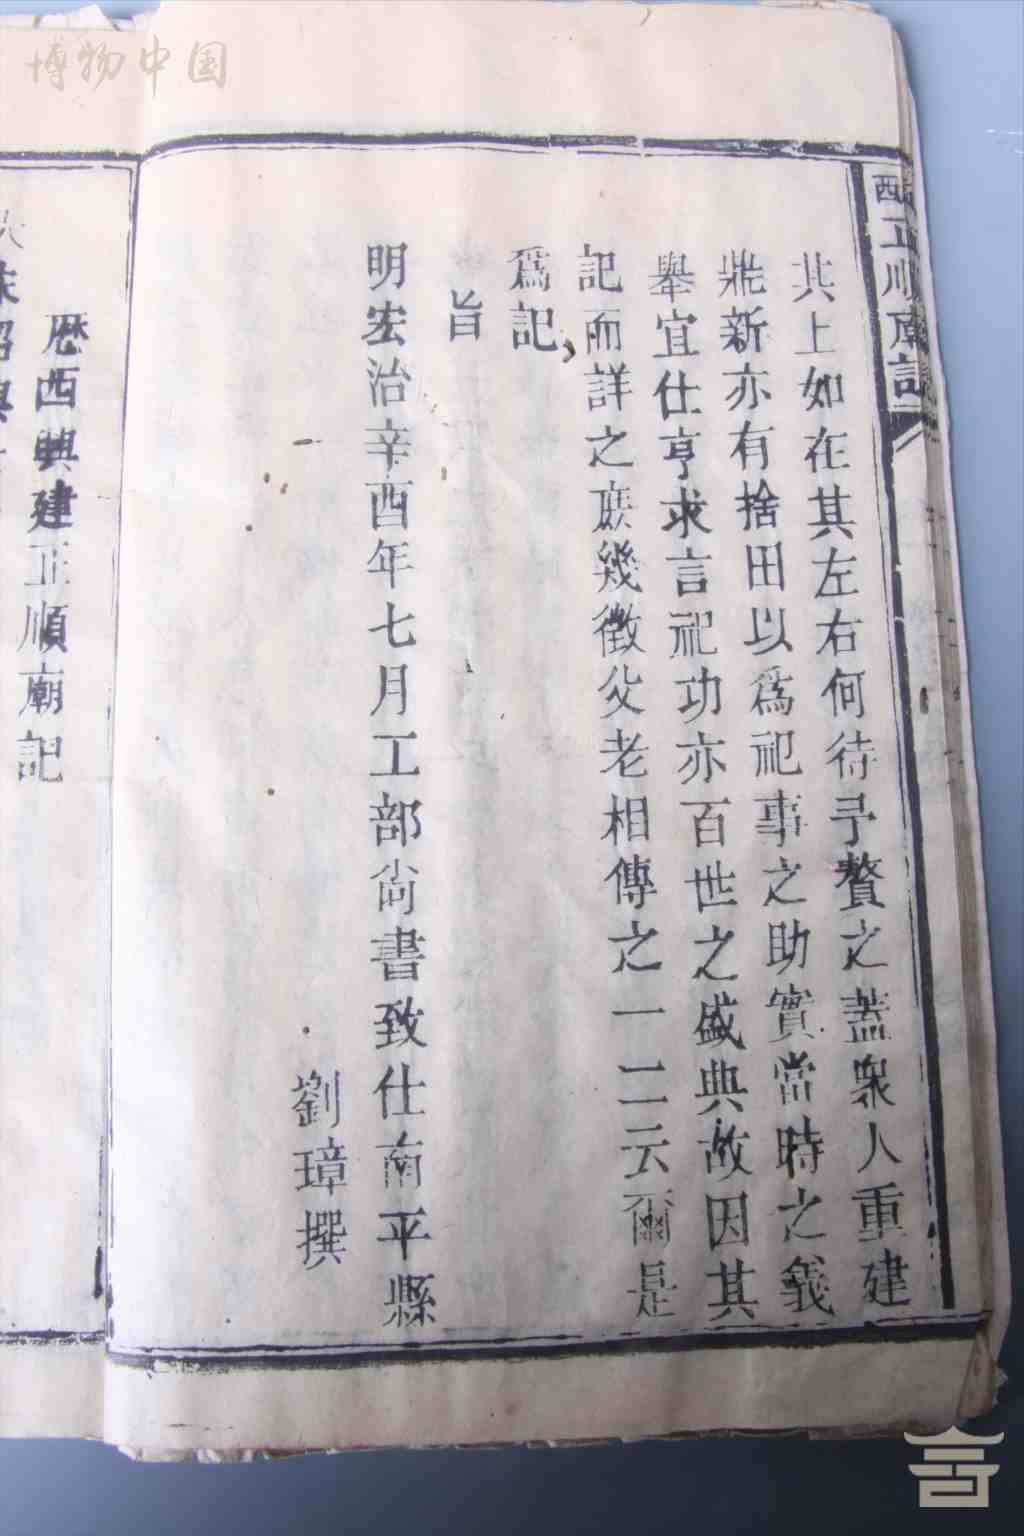 博物中国
西正順廟記
其上如在其左右何待予贅之蓋衆人重建
鼎新亦有捨田以爲祀事之助實當時之義
舉宜仕亨求言祀功亦百世之盛典故因其
記而詳之庶幾徵父老相傳之一二云爾是
爲記
旨
明宏治辛酉年七月工部尚書致仕南平縣
劉璋撰
歴西興建正順廟記
宋紹興